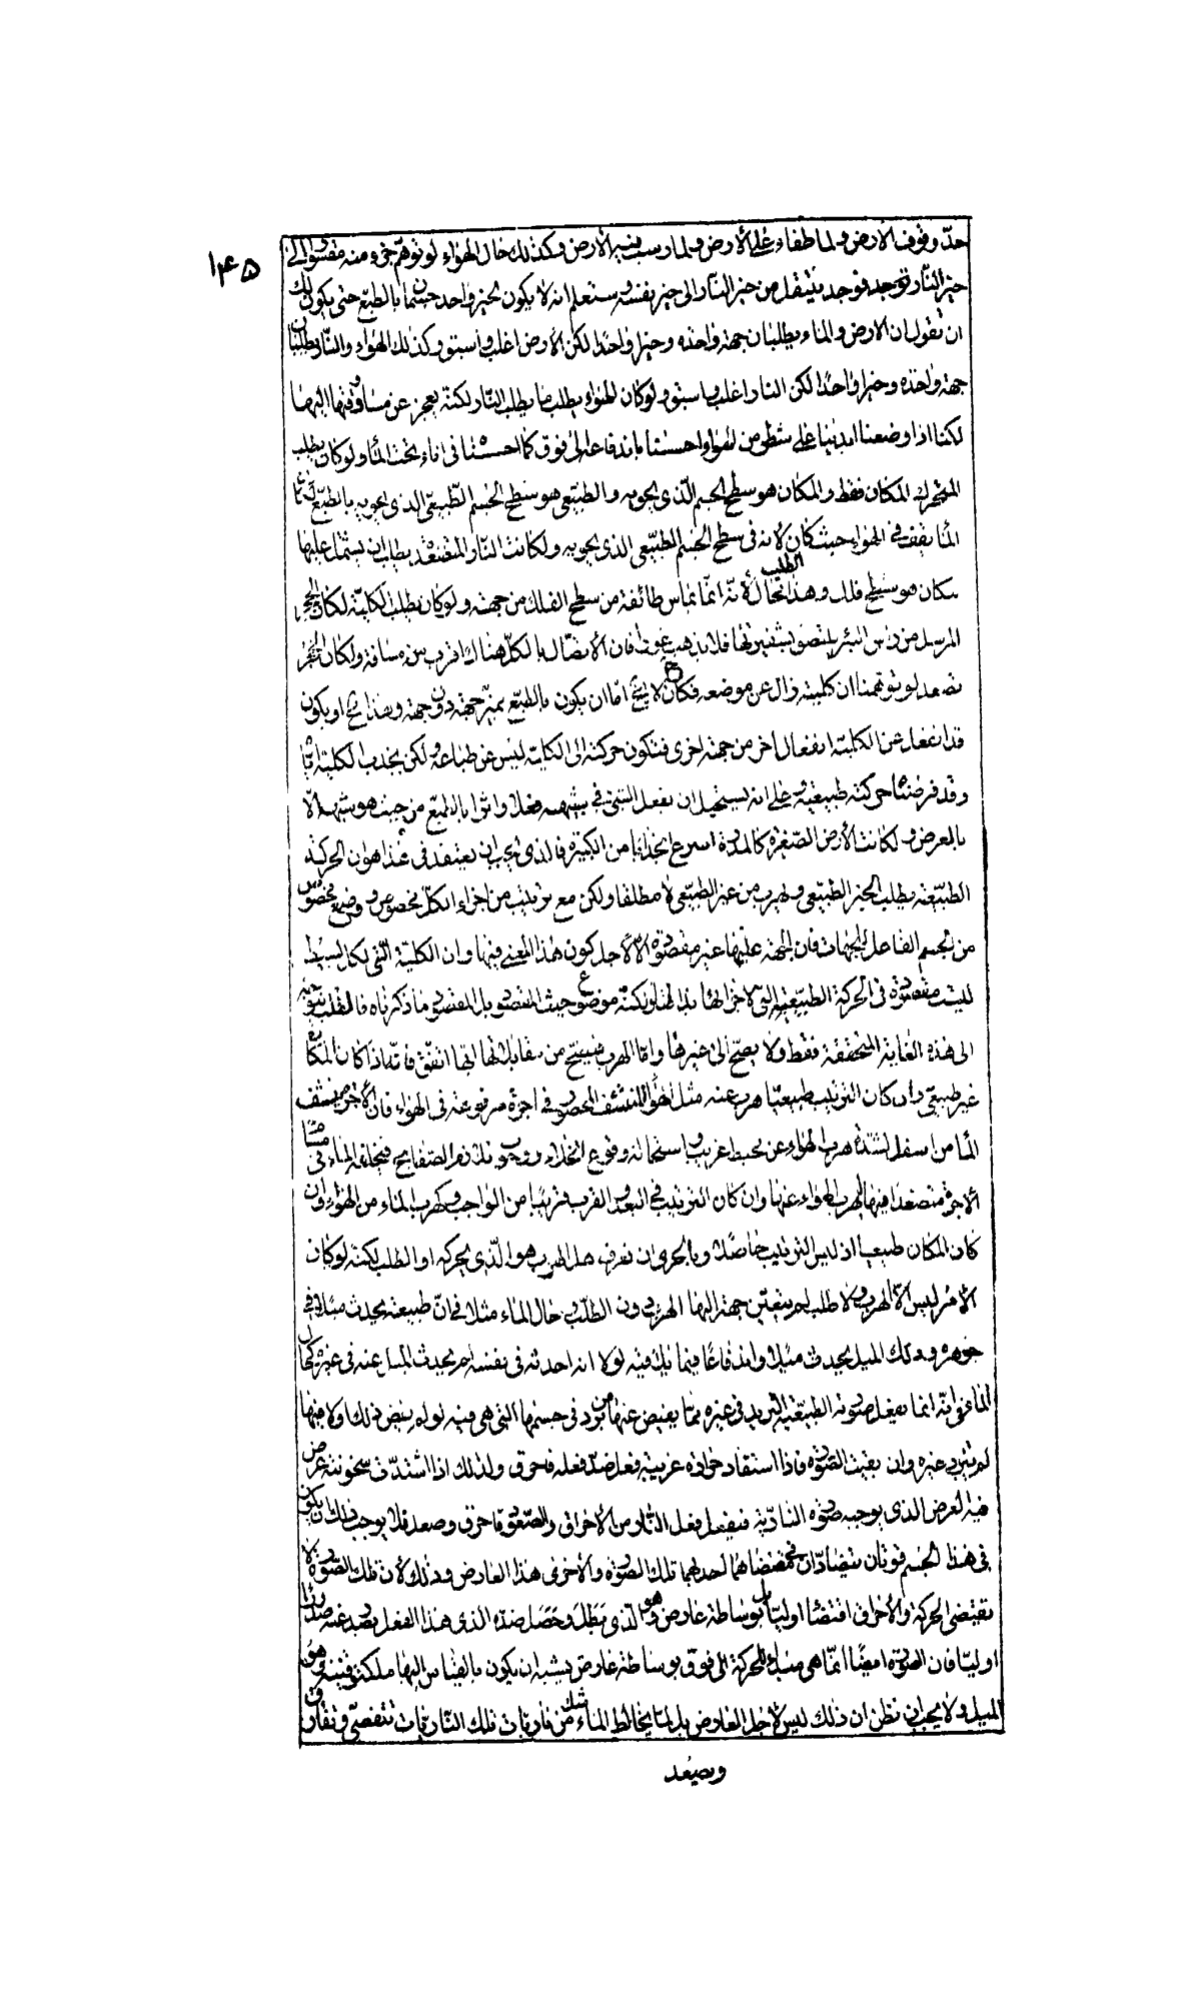 ۱۴۵
حدّ وقوف الأرض ولما طفاء على الأرض ولما رسب فيه الأرض وكذلك حال الهواء لو توهم جزء منه مقسورا الى
حيز النار لوجد ينتقل من حيز النار الى حيز نفسه وستعلم انه لا يكون لحيز واحد جسمان بالطبع حتى يكون لك
ان تقول ان الارض والماء يطلبان جهة واحدة وحيزا واحدا لكن الأرض اغلب واسبق وكذلك الهواء والنار يطلبان
جهة واحدة وحيزا واحدا لكن النار اغلب واسبق ولو كان الهواء يطلب ما يطلب النار لكنه يعجز عن مساوقتها اليها
لكنا اذا وضعنا ايدينا على شطر من الهواء احسسنا باندفاعه الى فوق كما احسسنا فى اناء تحت الماء ولو كان يطلب
المتحرك المكان فقط والمكان هو سطح الجسم الذى يحويه والطبيعى هو سطح الجسم الطبيعى الذى يحويه بالطبع
الماء يقف فى الهواء حيث كان لأنه فى سطح الجسم الطبيعى الذى يحويه ولكانت النار المصعدة يطلب ان يشتمل عليها
مكان هو سطح فلك وهذا الطلب محال لأنه انما يماس طائفة من سطح الفلك من جهته ولو كان يطلب الكلية لكان الحجر
المرسل من رأس البئر يلتصق بشفيرها فلا يذهب غورا فان الاتصال بالكل هناك اقرب من مسافة ولكان الحجر
يصعد لو توهمنا ان كليته زال عن موضعه فكان ح لا يخ اما ان يكون بالطبع يميز جهة دون جهة وهذا مح او يكون
قد انفعل عن الكلية انفعال اخر من جهة اخرى فتكون حركته الى الكلية ليس عن طباعه ولكن بجذب الكلية اياها
وقد فرضنا حركته طبيعية على انه يستحيل ان يفعل الشئ فى شبهه فعلا واثرا بالطبع من حيث هو شبهه الا
بالعرض ولكانت الأرض الصغيرة كالمدرة اسرع انجذابا من الكبيرة فالذى يجب ان يعتقد فى هذا هو ان الحركة
الطبيعية يطلب الحيز الطبيعى ويهرب من غير الطبيعى لا مطلقا ولكن مع ترتيب من اجزاء الكل مخصوص ووضع مخصوص
من الجسم الفاعل للجهات فان الجهة عينها غير مقصودة الا لأجل كون هذا المعنى فيها وان الكلية التى لكل بسيط
ليست مقصودة فى الحركة الطبيعية التى لاجزائها
الى هذه الغاية المحققة فقط ولا يصح الى غيرها واما الهرب فيصح من مقابلاتها ايها اتفق فانه اذا كان المكان
غير طبيعى وان كان الترتيب طبيعيا هرب عنه مثل الهواء المحصور فى اجرة مرفوعة فى الهواء فان الأجرة ينشف
الماء من اسفل لشدة هرب الهواء عن محيط غريب واستحالة وقوع الخلاء ووجوب تلازم الصفايح فيخلفه الماء فى مسام
الأجرة متصعدا فيها لهرب الهواء عنها وان كان الترتيب فى البعد والقرب قريبا من الواجب وكهرب الماء من الهواء وان
كان المكان طبيعيا اذ ليس الترتيب حاصلا وبالحرى ان نعرف هل الهرب هو الذى يحركه او الطلب لكنه لو كان
الأمر ليس الا الهرب ولا طلب لم يتعين جهة اليها الهرب دون الطلب وحال الماء مثلا فى ان طبيعته يحدث ميلا فى
جوهره وذلك الميل يحدث ميلا واندفاعا فيما يلاقيه لولا انه احدثه فى نفسه لم يحدث الميل عنه فى غيره كحال
الماء فى انه انما يفعل صورته الطبيعية التبريد فى غيره مما يفيض عنها من برد فى جسمها التى هى فيه لو لم يفض ذلك اولا فيها
لم يتبرد غيره وان بقيت الصورة فاذا استفاد حرارة غريبة فعل ضد فعله فاحرق ولذلك اذا اشتدت سخونته عرض
فيه العرض الذى يوجبه صورة النارية فيفعل فعل النار من الأحراق والصعود فاحرق وصعد فلا يوجب ذلك ان يكون
فى هذا الجسم قوتان متضادتان مقتضاهما احدهما تلك الصورة والأخرى هذا العارض وذلك لأن تلك الصورة لا
تقتضى الحركة والأحراق اقتضاء اوليا بل بوساطة عارض وهو الذى بطل وحصل ضده الذى هذا الفعل يصدر عنه صدورا
اوليا فان الصورة ايضا انما هى مبدأ للحركة الى فوق بوساطة عارض يشبه ان يكون بالقياس اليها ملكة وقنية وهو
الميل ولا يجب ان تظن ان ذلك ليس لأجل العارض بل لما يخالط الماء من ناريات تلك الناريات تتفصى وتفارق
ويصعد